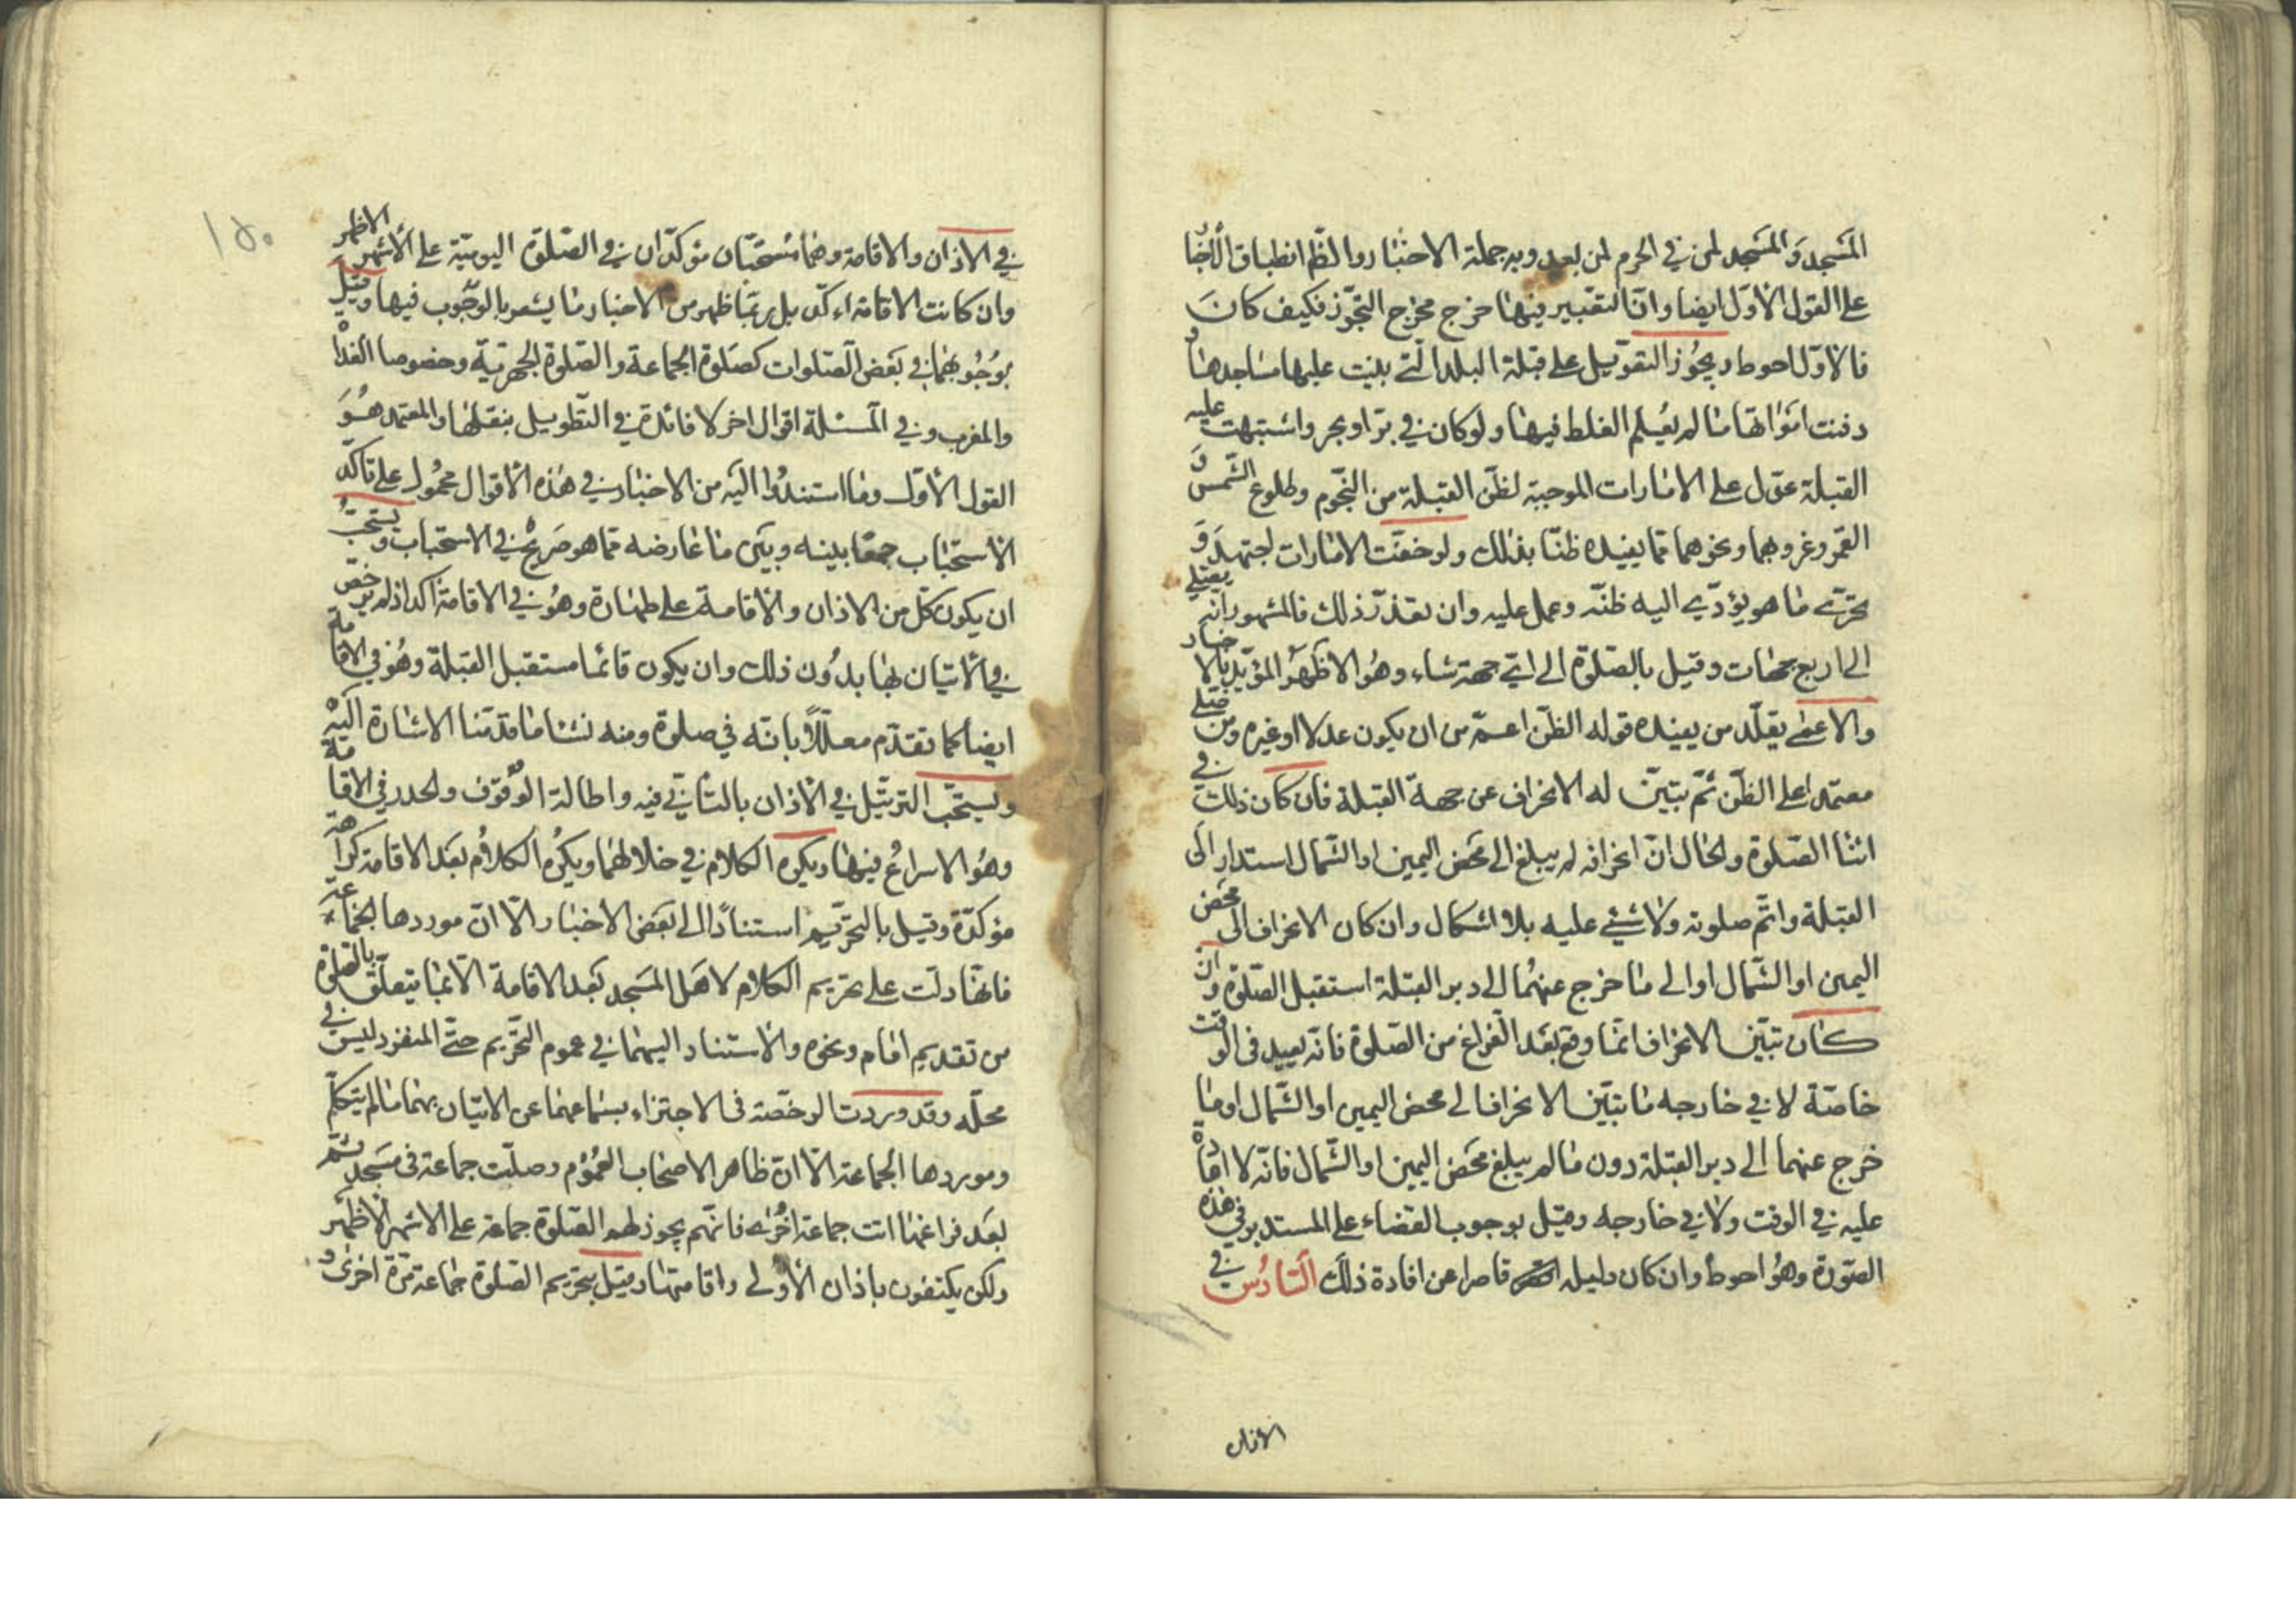 المسجد والمسجد لمن في الحرم لمن بعد وبه جملة الاخبار والظ انطباق الاخبار
على القول الاول ايضا وان التعبير فيها خرج مخرج التجوز فكيف كان
فالاول احوط ويجوز التعويل على قبلة البلد التي بنيت عليها مساجدها و
دفنت امواتها ما لم يعلم الغلط فيها ولو كان في بر او بحر واشتبهت عليه
القبلة عول على الامارات الموجبة لظن القبلة من النجوم وطلوع الشمس و
القمر وغروبهما ونحوهما مما يفيده ظنا بذلك ولو خفت الامارات اجتهد و
تحرى ما هو يؤدي اليه ظنه وعمل عليه وان تعذر ذلك فالمشهور انه يصلي
الى اربع جهات وقيل بالصلوة الى اي جهة شاء وهو الاظهر المؤيد بالاخبار
والاعمى يقلد من يفيده قوله الظن اعم من ان يكون عدلا او غيره ومن صلى
معتمدا على الظن ثم تبين له الانحراف عن جهة القبلة فان كان ذلك في
اثنا الصلوة والحال ان انحرافه لم يبلغ الى محض اليمين او الشمال استدار الى
القبلة واتم صلوته ولا شيء عليه بلا اشكال وان كان الانحراف الى محض
اليمين او الشمال او الى ما خرج عنهما الى دبر القبلة استقبل الصلوة وان
كان تبين الانحراف انما وقع بعد الفراغ من الصلوة فانه يعيد في الوقت
خاصة لا في خارجه ما تبين الانحراف الى محض اليمين او الشمال او ما
خرج عنهما الى دبر القبلة دون ما لم يبلغ محض اليمين او الشمال فانه لا اعادة
عليه في الوقت ولا في خارجه وقيل بوجوب القضاء على المستدبر في هذه
الصورة وهو احوط وان كان دليله قاصرا عن افادة ذلك السادس في
الاذان
١٥٠
في الاذان والاقامة وهما مستحبان مؤكدان في الصلوة اليومية على الاشهر الاظهر
وان كانت الاقامة اكد بل ربما ظهر من الاخبار ما يشعر بالوجوب فيها وقيل
بوجوبهما في بعض الصلوات كصلوة الجماعة والصلوة الجهرية وخصوصا الغداة
والمغرب وفي المسئلة اقوال اخر لا فائدة في التطويل بنقلها والمعتمد هو
القول الاول وما استندوا اليه من الاخبار في هذه الاقوال محمول على تاكد
الاستحباب جمعا بينه وبين ما عارضه مما هو صريح في الاستحباب ويستحب
ان يكون كل من الاذان والاقامة على طهارة وهو في الاقامة اكد اذ لم يرخص
في الاتيان بها بدون ذلك وان يكون قائما مستقبل القبلة وهو في الاقامة
ايضا كما تقدم معللا بانه في صلوة ومنه نشا ما قدمنا الاشارة اليه
ويستحب الترتيل في الاذان بالتاني فيه واطالة الوقوف والحدر في الاقامة
وهو الاسراع فيها ويكره الكلام في خلالهما ويكره الكلام بعد الاقامة كراهة
مؤكدة وقيل بالتحريم استنادا الى بعض الاخبار الا ان موردها الجماعة
فانها دلت على تحريم الكلام لاهل المسجد بعد الاقامة الا بما يتعلق بالصلوة
من تقديم امام ونحوه والاستناد اليهما في عموم التحريم حتى المنفرد ليس في
محله وقد وردت الرخصة في الاجتزاء بسماعهما عن الاتيان بهما ما لم يتكلم
وموردها الجماعة الا ان ظاهر الاصحاب العموم وصلت جماعة في مسجد ثم
بعد فراغها اتت جماعة اخرى فانهم يجوز لهم الصلوة جماعة على الاشهر الاظهر
ولكن يكتفون باذان الاولى واقامتها وقيل بتحريم الصلوة جماعة مرة اخرى و